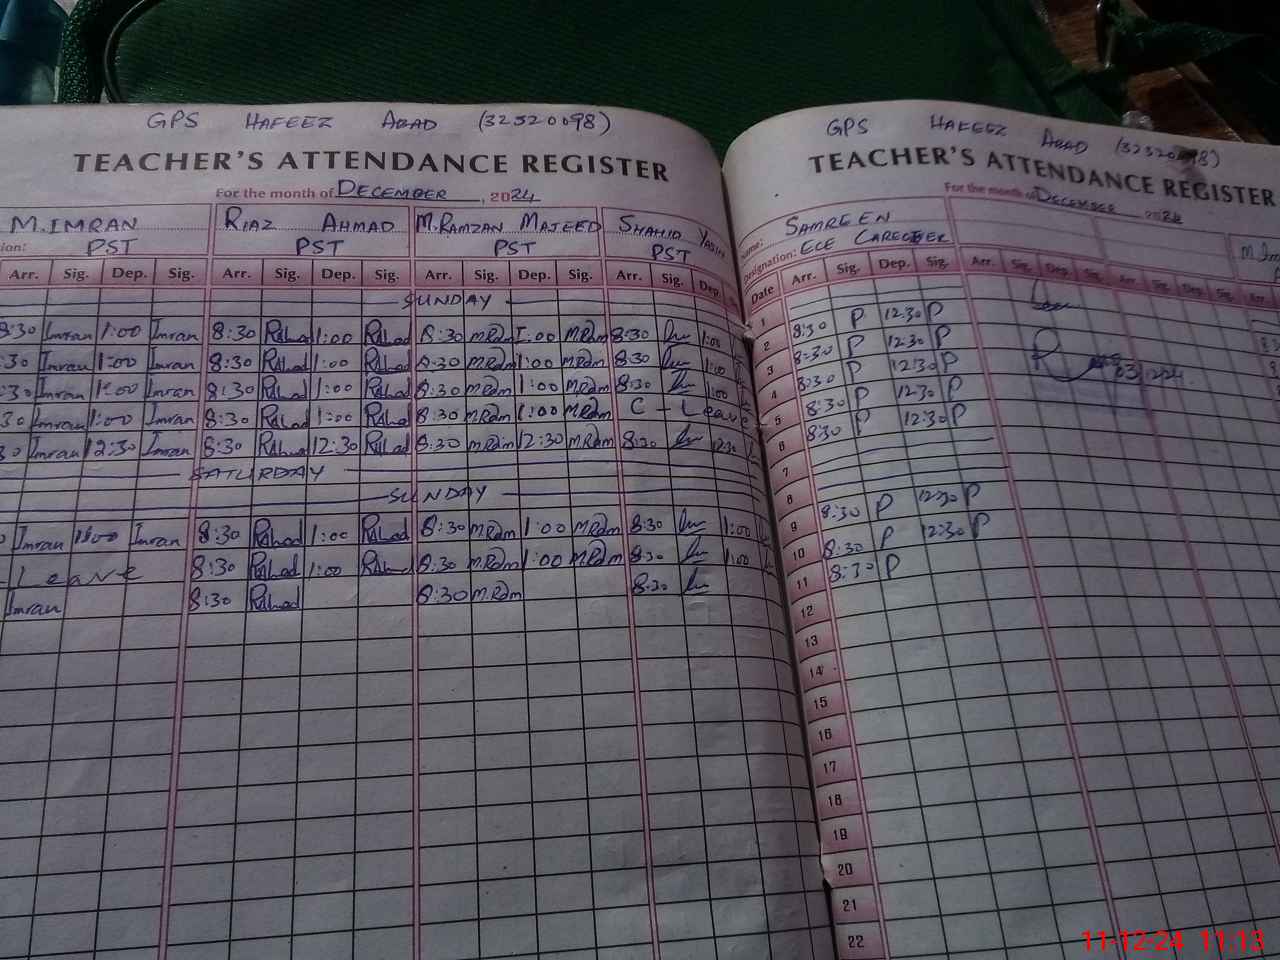 GPS HAFEEZ ABAD (32320098)
TEACHER'S ATTENDANCE REGISTER
For the month of DECEMBER, 2024
M.IMRAN RIAZ AHMAD M.RAMZAN MAJEED SHAHID YASIN
ion: PST PST PST PST
Arr. Sig. Dep. Sig. Arr. Sig. Dep. Sig. Arr. Sig. Dep. Sig. Arr. Sig. Dep.
SUNDAY
8:30 Imran 1:00 Imran 8:30 1:00 8:30 M.Ram 1:00 M.Ram 8:30 1:00
:30 Imran 1:00 Imran 8:30 1:00 8:30 M.Ram 1:00 M.Ram 8:30 1:00
:30 Imran 1:00 Imran 8:30 1:00 8:30 M.Ram 1:00 M.Ram 8:30 1:00
30 Imran 1:00 Imran 8:30 1:00 8:30 M.Ram 1:00 M.Ram C - Leave
0 Imran 12:30 Imran 8:30 12:30 8:30 M.Ram 12:30 M.Ram 8:30 12:30
SATURDAY
SUNDAY
Imran 1:00 Imran 8:30 1:00 8:30 M.Ram 1:00 M.Ram 8:30 1:00
- Leave 8:30 1:00 8:30 M.Ram 1:00 M.Ram 8:30 1:00
Imran 8:30 8:30 M.Ram 8:30
GPS HAFEEZ ABAD (32320098)
TEACHER'S ATTENDANCE REGISTER
For the month of DECEMBER 2024
Name: SAMREEN
Designation: ECE CAREGIVER
Date Arr. Sig. Dep. Sig. Arr. Sig. Dep. Sig. Arr. Sig. Dep. Sig. Arr.
1
2 8:30 P 12:30 P
3 8:30 P 12:30 P
4 8:30 P 12:30 P
5 8:30 P 12:30 P
6 8:30 P 12:30 P
7
8
9 8:30 P 12:30 P
10 8:30 P 12:30 P
11 8:30 P
12
13
14
15
16
17
18
19
20
21
22
11-12-24 11:13